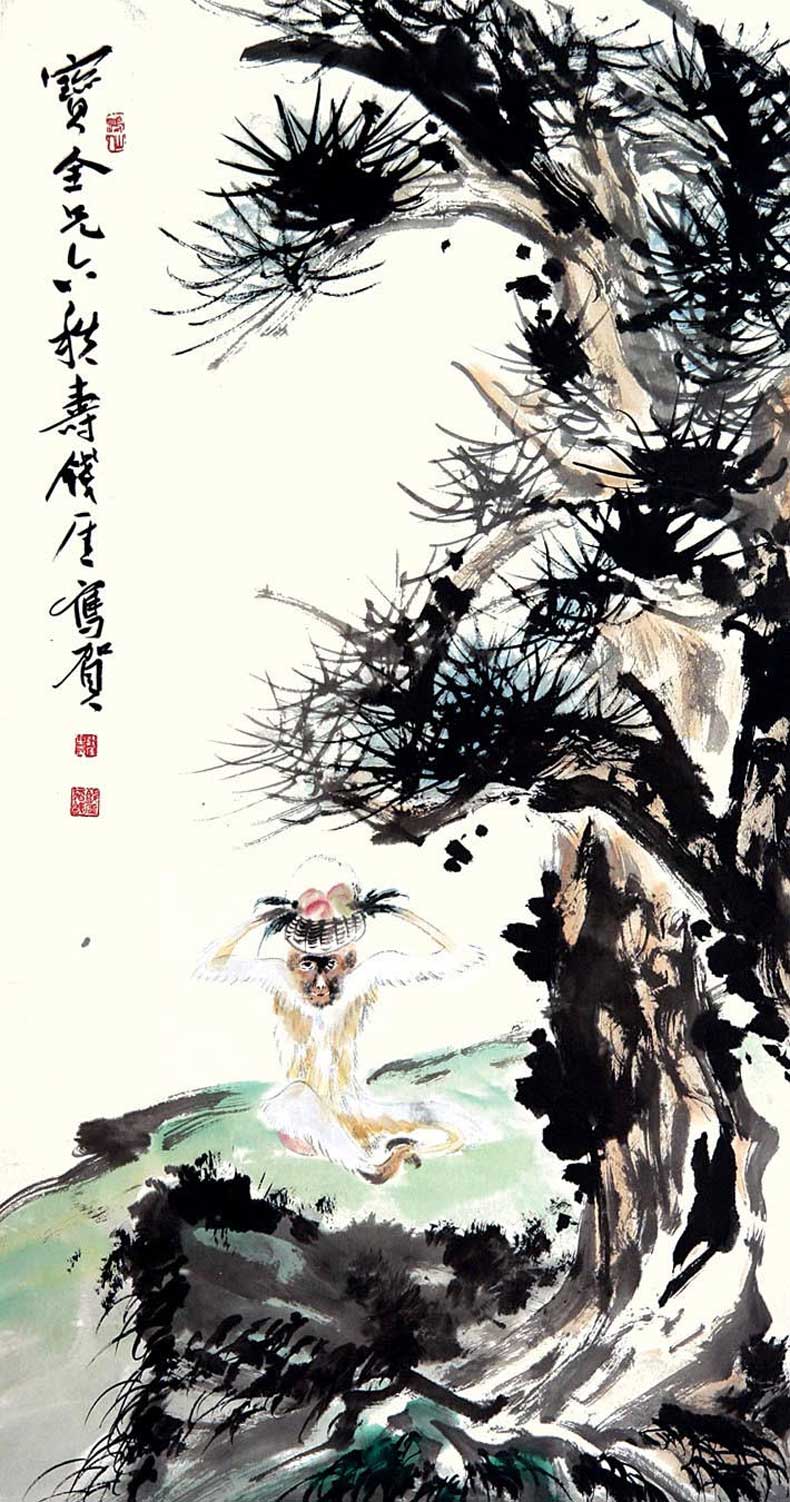 寶金兄六秩壽錢厓寫賀